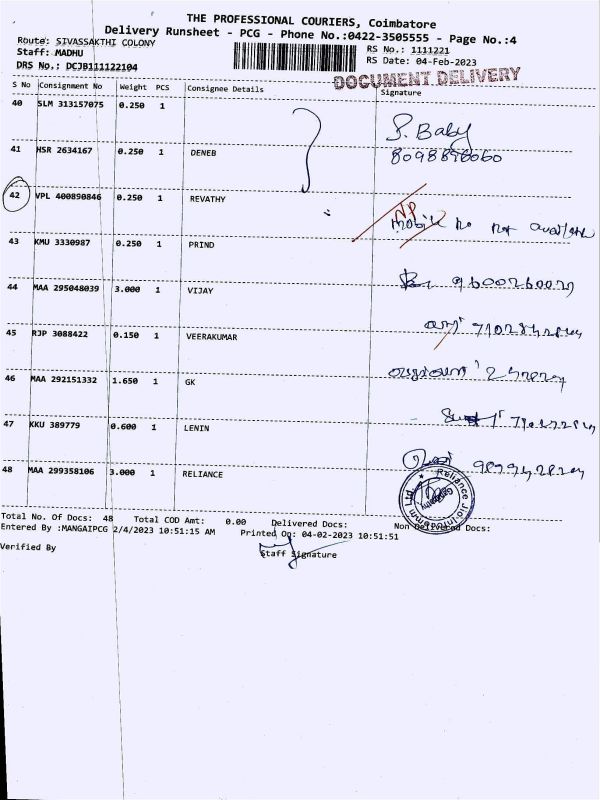 THE PROFESSIONAL COURIERS, Coimbatore
Delivery Runsheet - PCG - Phone No.:0422-3505555 - Page No.:4
Route: SIVASSAKTHI COLONY
RS No.: 1111221
Staff: MADHU
RS Date: 04-Feb-2023
DRS No.: DCJB111122104
DOCUMENT DELIVERY
S No Consignment No Weight PCS Consignee Details Signature
40 SLM 313157075 0.250 1
P. Baby
41 HSR 2634167 0.250 1 DENEB
8098898060
42 VPL 400890846 0.250 1 REVATHY
NP
mobile no not available
43 KMU 3330987 0.250 1 PRIND
44 MAA 295048039 3.000 1 VIJAY
45 RJP 3088422 0.150 1 VEERAKUMAR
46 MAA 292151332 1.650 1 GK
47 KKU 389779 0.600 1 LENIN
48 MAA 299358106 3.000 1 RELIANCE
Reliance Jio Infocomm Ltd
Total No. Of Docs: 48 Total COD Amt: 0.00 Delivered Docs: Non Delivered Docs:
Entered By :MANGAIPCG 2/4/2023 10:51:15 AM Printed On: 04-02-2023 10:51:51
Verified By Staff Signature